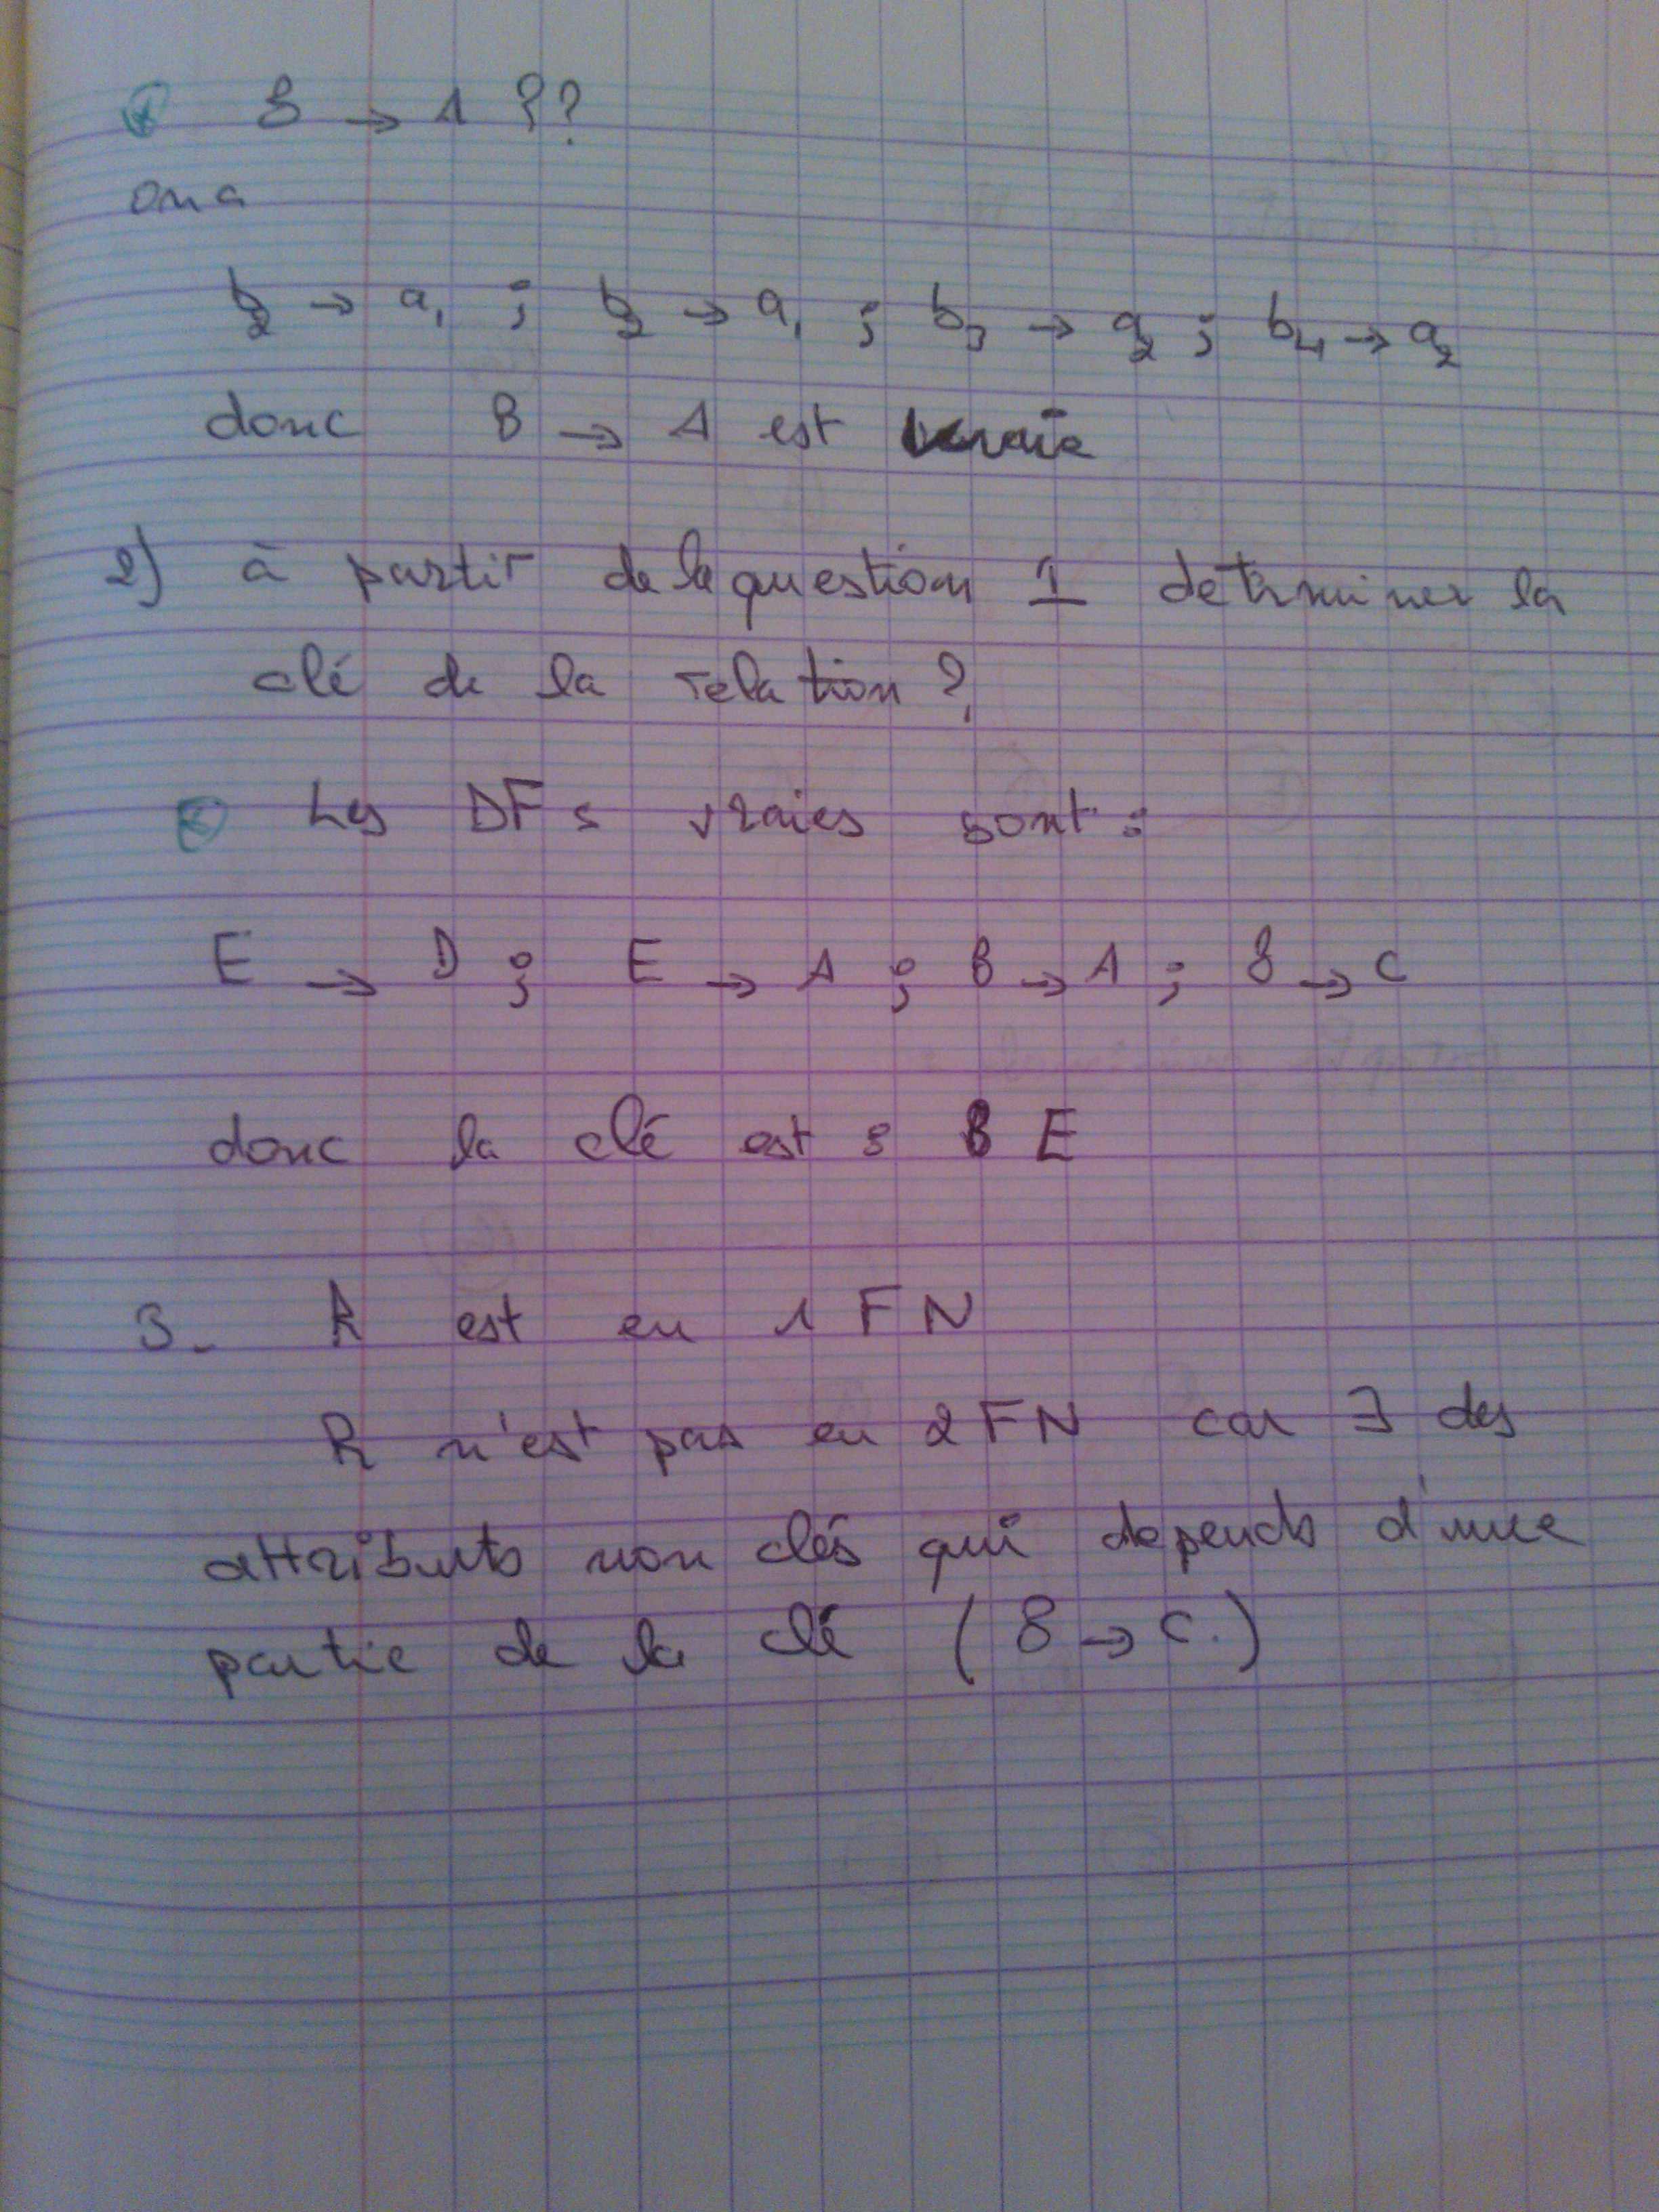 B → A ??
on a
b2 → a1 ; b2 → a1 ; b3 → a2 ; b4 → a2
donc B → A est vraie
2) à partir de la question 1 determiner la
clé de la relation ?
Les DFs vraies sont :
E → D ; E → A ; B → A ; B → C
donc la clé est : B E
3- R est en 1 FN
R n'est pas en 2 FN car ∃ des
attributs non clés qui depends d'une
partie de la clé ( B → C. )